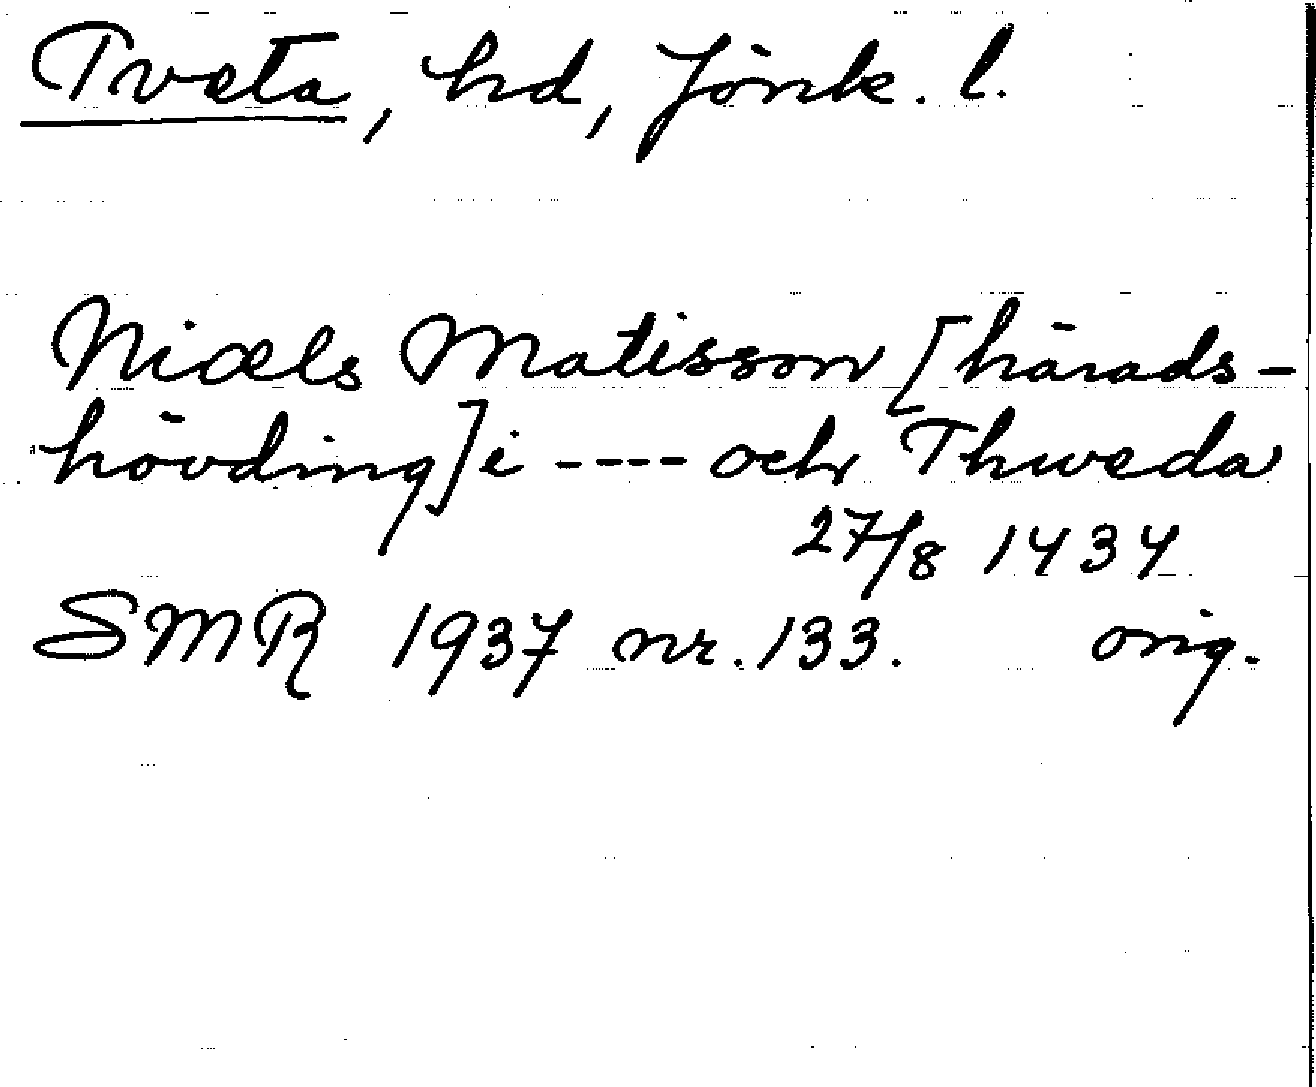 Tveta, hd, Jönk. l.
Niæls Matisson [härads-
hövding] i ---- och Thweda
27/8 1434
SMR 1937 nr. 133. orig.